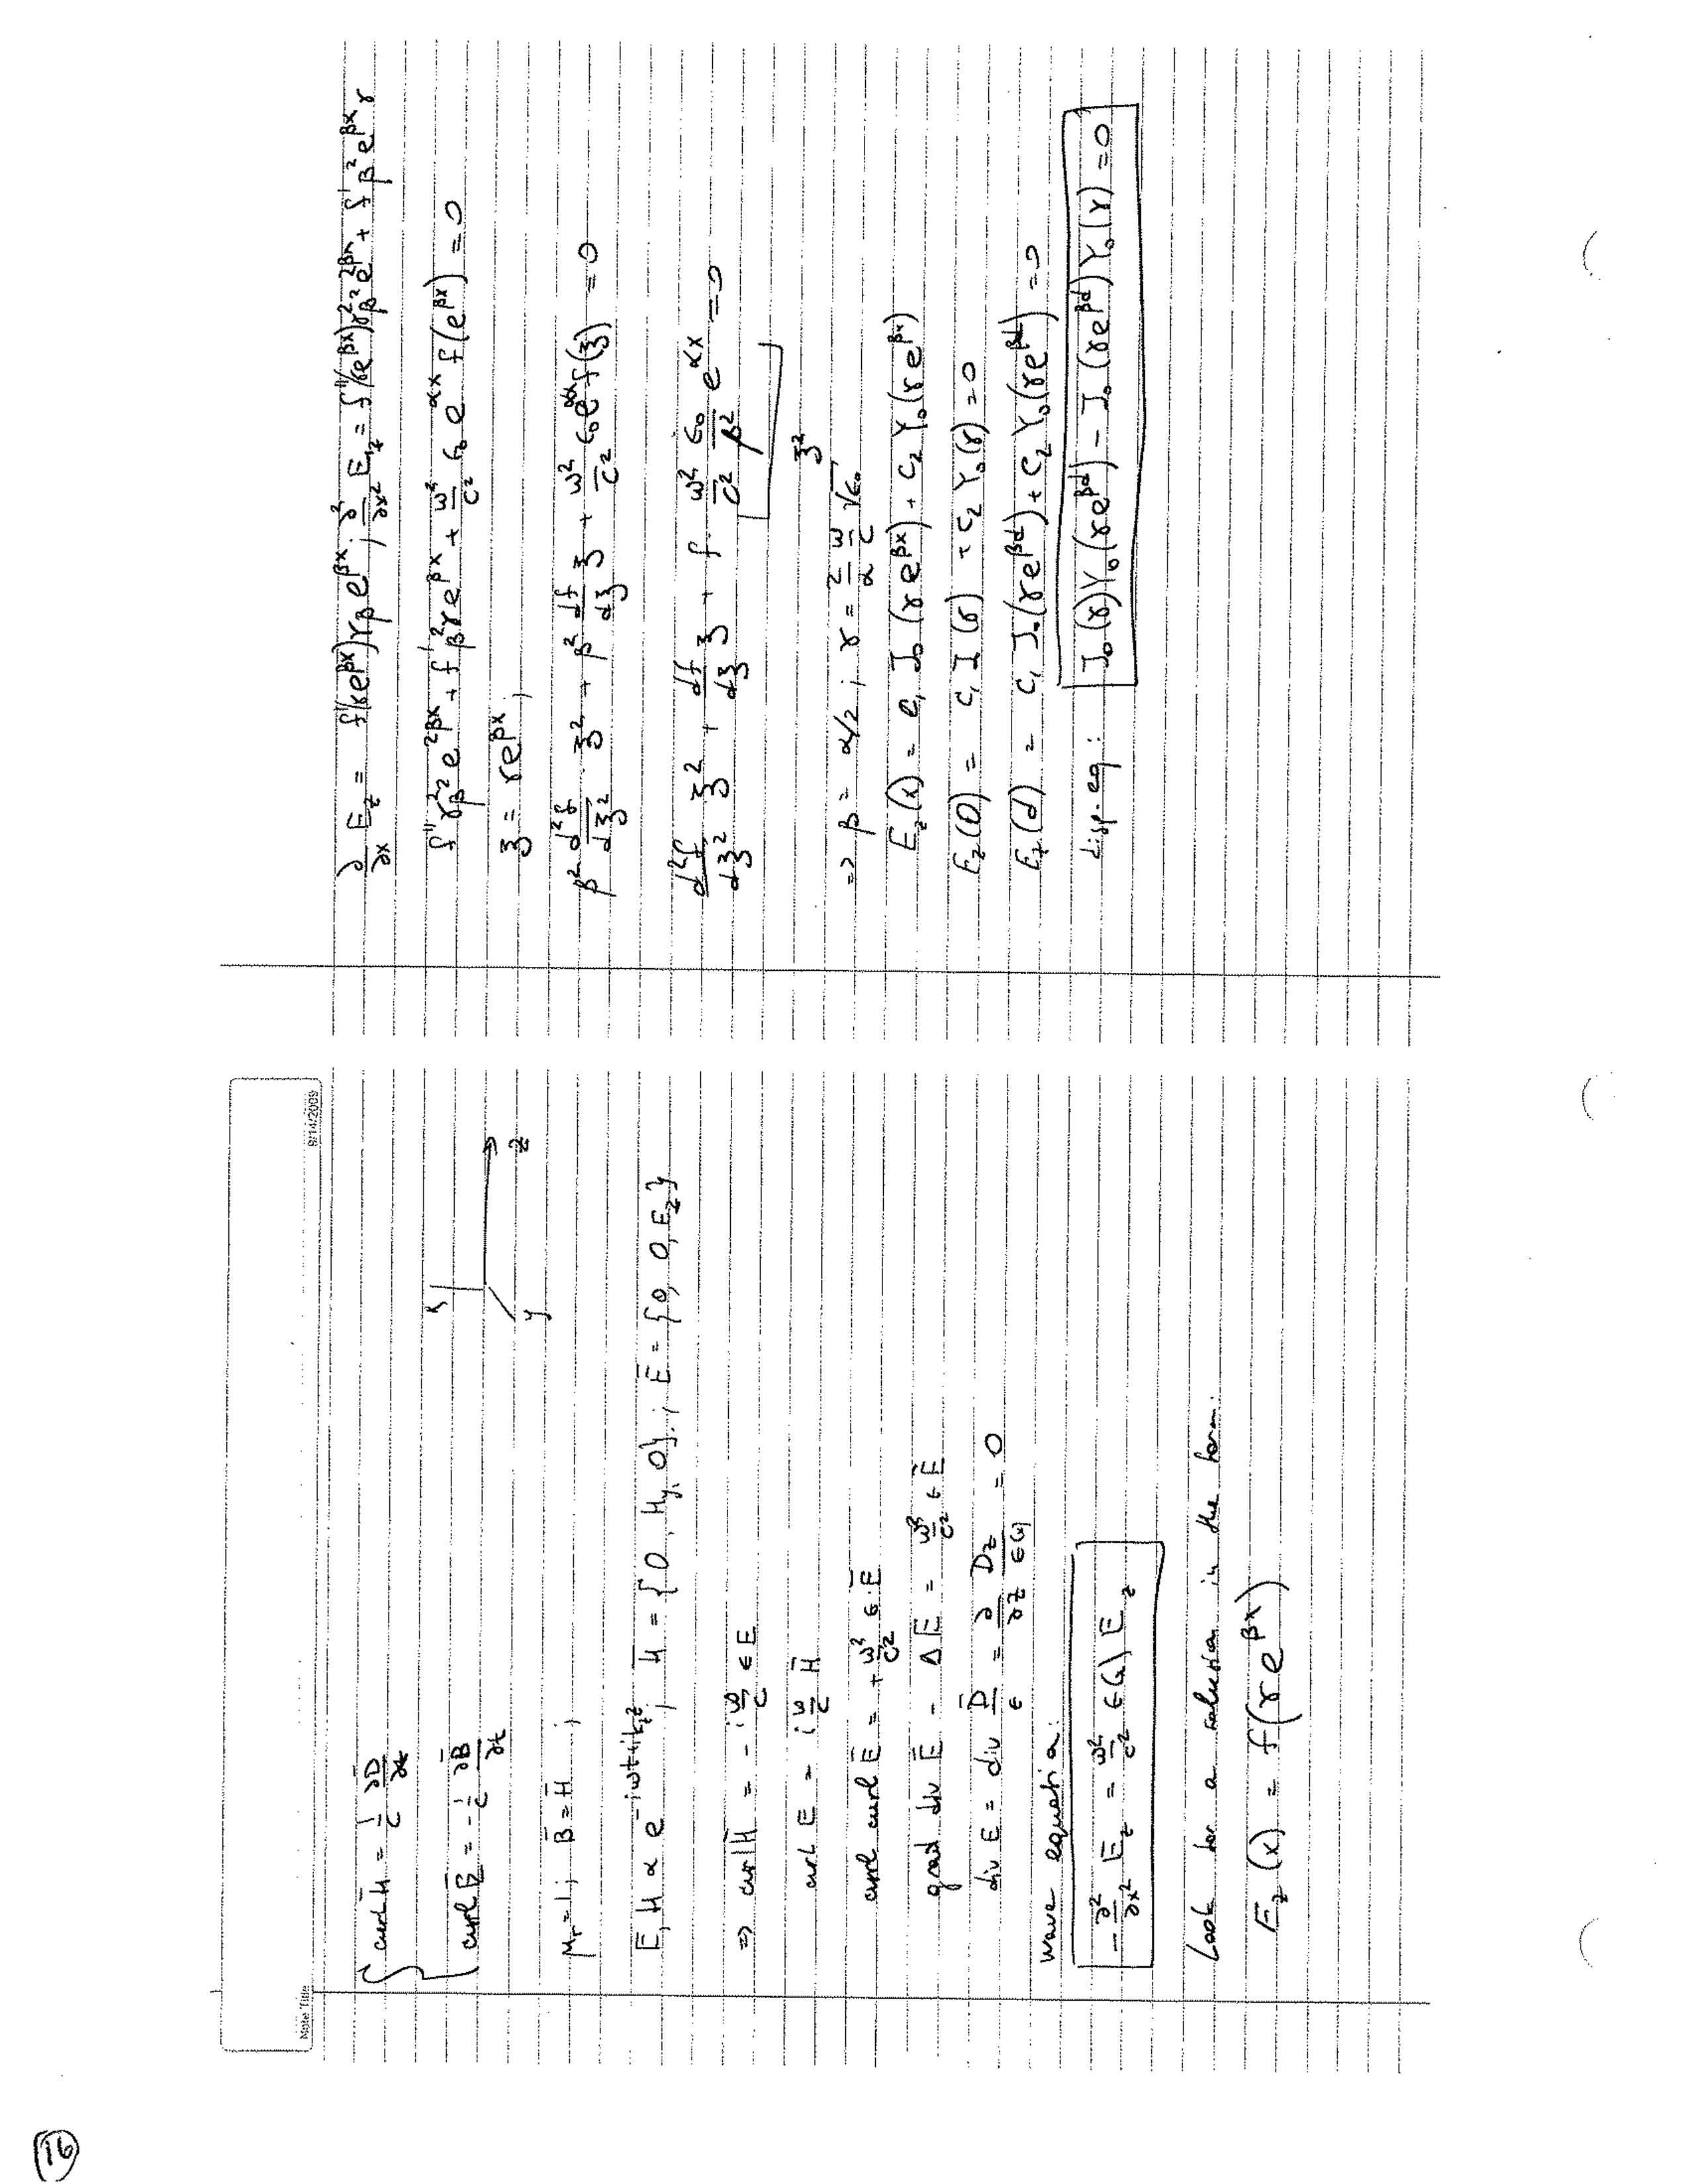 16
Note Title
8/14/2009
curl H̄ = 1/c ∂D̄/∂t
curl Ē = - 1/c ∂B̄/∂t
x
y
z
μr = 1; B̄ = H̄ ;
Ē, H̄ ∝ e^{-iωt+ik_z z} ; H̄ = {0, Hy, 0}; Ē = {0, 0, Ez}
=> curl H̄ = - i ω/c ϵ E
curl E = i ω/c H̄
curl curl Ē = + ω²/c² ϵ Ē
grad div Ē - ΔĒ = ω²/c² ϵ Ē
div E = div D̄/ϵ = ∂/∂z Dz/ϵ(x) = 0
wave equation:
- ∂²/∂x² Ez = ω²/c² ϵ(x) Ez
Look for a solution in the form:
Ez(x) = f(γe^{βx})
∂/∂x Ez = f'(γe^{βx})γβ e^{βx} ; ∂²/∂x² Ez = f''(γe^{βx})γ²β² e^{2βx} + f' β² e^{βx} γ
f'' γ²β² e^{2βx} + f' β² γe^{βx} + ω²/c² ϵ₀ e^{αx} f(e^{βx}) = 0
ξ = γe^{βx} ;
β² d²f/dξ² · ξ² + β² df/dξ ξ + ω²/c² ϵ₀ e^{αx} f(ξ) = 0
d²f/dξ² ξ² + df/dξ ξ + f · ω²/c² ϵ₀/β² e^{αx} = 0
ξ²
=> β = α/2 ; γ = 2/α ω/c √ϵ₀
Ez(x) = c₁ J₀(γe^{βx}) + c₂ Y₀(γe^{βx})
Ez(0) = c₁ J(γ) + c₂ Y₀(γ) = 0
Ez(d) = c₁ J₀(γe^{βd}) + c₂ Y₀(γe^{βd}) = 0
disp. eq: J₀(γ)Y₀(γe^{βd}) - J₀(γe^{βd})Y₀(γ) = 0